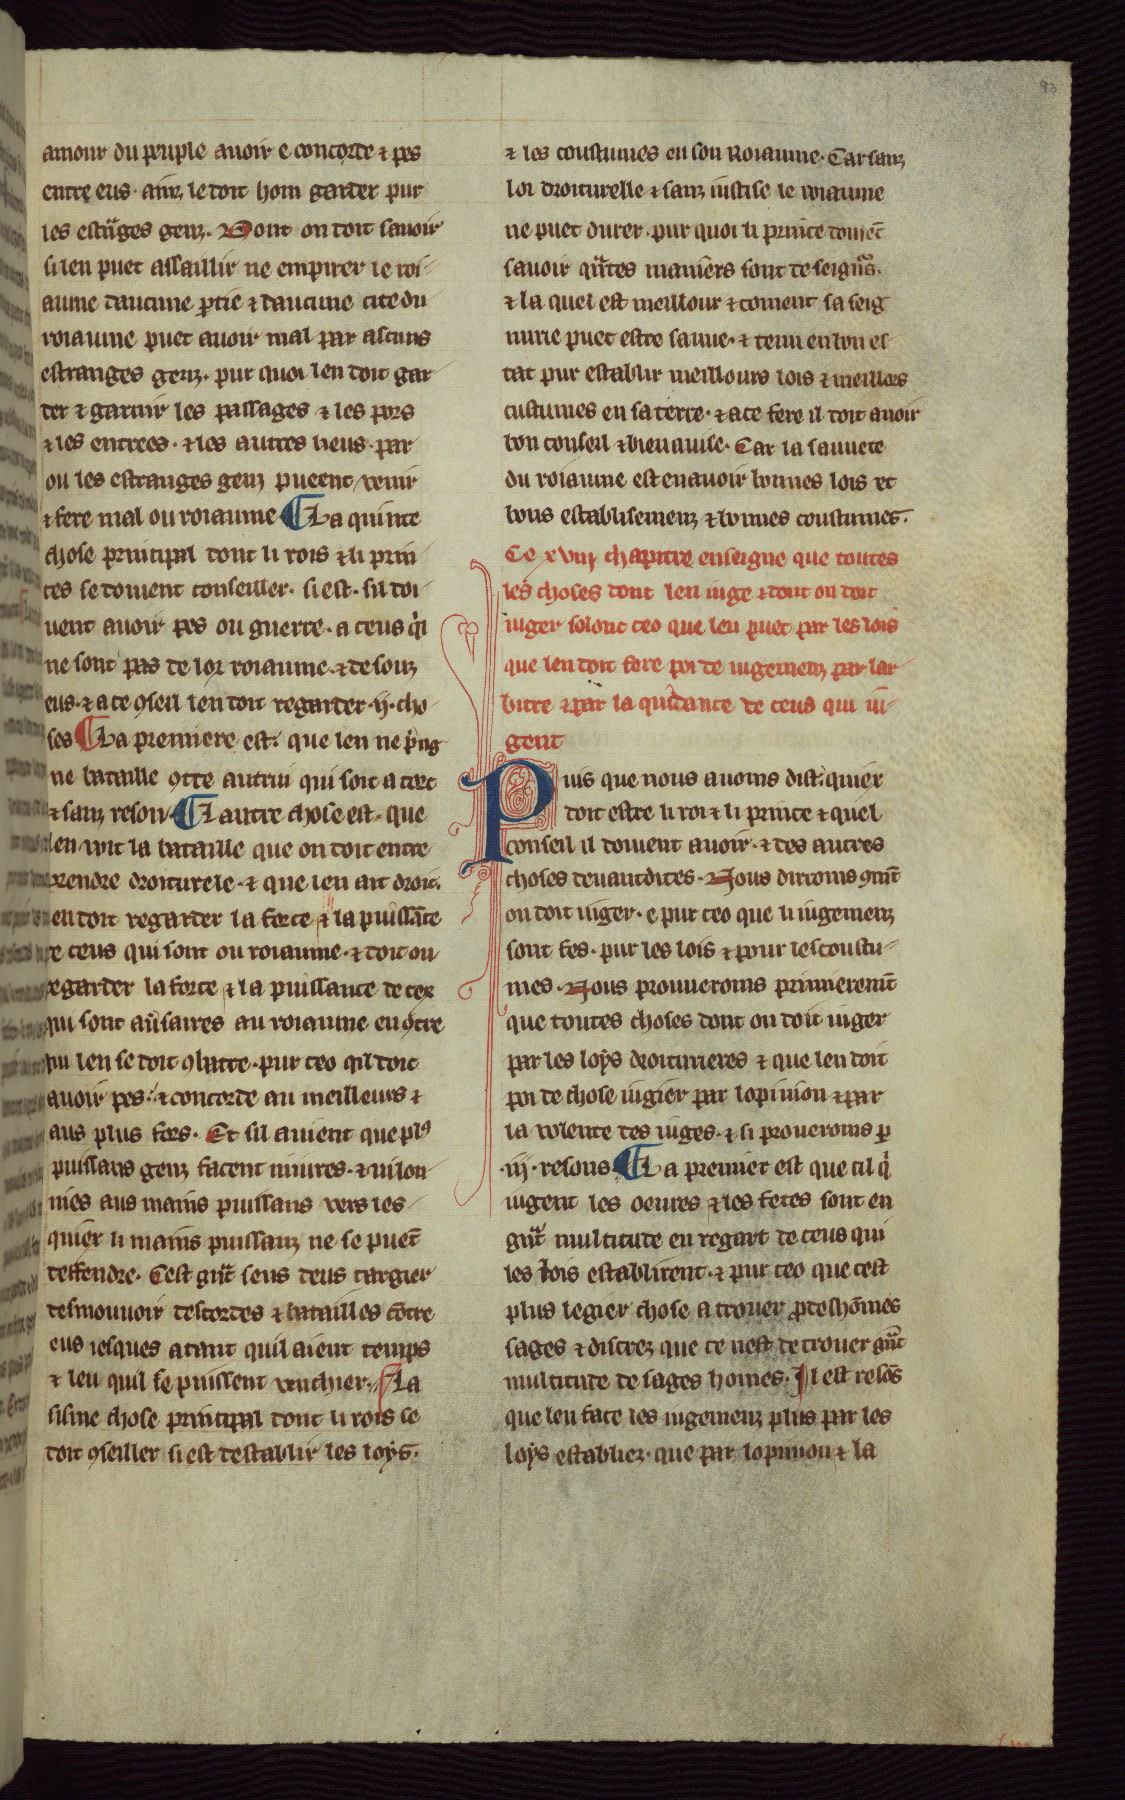 amour du pueple avoir e concorde ⁊ pes
entre eus. ainz le doit hom garder pur
les estⁿges genz. Dont on doit savoir
si len puet assaillir ne empirer le roi-
aume daucune ꝑtie ⁊ daucune cite du
roiaume puet avoir mal par ascuns
estranges genz. pur quoi len doit gar-
der ⁊ garnir les passages ⁊ les pors
⁊ les entrees. ⁊ les autres lieus. par
ou les estranges genz pueent venir
⁊ fere mal ou roiaume ¶ La quinte
chose principal dont li rois ⁊ li prin-
ces se doivent conseiller. si est. sil doi-
vent avoir pes ou guerre. a ceus q̇i
ne sont pas de lor roiaume. ⁊ de souz
eus. ⁊ a ce ꝯseil len doit regarder .ij. cho-
ses ¶ La premiere est. que len ne p̄ng-
ne bataille ꝯtre autrui qui soit a tort
⁊ sanz reson. ¶ Lautre chose est. que
len voit la bataille que on doit entre-
prendre droiturele. ⁊ que len ait droit.
len doit regarder la force ⁊ la puissāce
de ceus qui sont ou roiaume. ⁊ doit on
regarder la force ⁊ la puissance de cex
qui sont aūsaires au roiaume en ꝯtre
qui len se doit ꝯbatre. pur ceo q̇l doit
avoir pes. ⁊ concorde au meilleurs ⁊
aus plus fors. Et sil avient que plꝰ
puissans genz facent iniures. ⁊ vilon-
nies aus mains puissans vers les-
quier li mains puissanz ne se puet
deffendre. Cest gⁿt sens deus targier
desmouvoir descordes ⁊ batailles cōtre
eus iesques atant quil aient temps
⁊ leu quil se puissent venchier. ¶ La
sisme chose principal dont li rois se
doit ꝯseiller si est destablir les loys.
⁊ les coustumes en son Roiaume. Car sanz
loi droiturelle ⁊ sanz iustise le roiaume
ne puet durer. pur quoi li prince doivēt
savoir qⁿtes maniers sont de seignⁿs.
⁊ la quel est meillour ⁊ coment sa seig
nurie puet estre sauve. ⁊ tenu en bon es
tat pur establir meillours lois ⁊ meillors
custumes en sa terre. ⁊ a ce fere il doit avoir
bon conseil ⁊ bien avise. Car la sauvete
du roiaume est en avoir bonnes lois et
bons establisemenz ⁊ bonnes coustumes.
Ce xviij chapitre enseigne que toutes
les choses dont len iuge ⁊ dont on doit
iuger solonc ceo que len puet par les lois
que len doit fere poi de iugemenz par lar-
bitre ⁊ par la quidance de ceus qui iu-
gent
Puis que nous avoms dist. quier
doit estre li roi ⁊ li prince ⁊ quel
conseil il doivent avoir. ⁊ des autres
choses devantdites. Nous diroms ꝯmēt
on doit iuger. e pur ceo que li iugemenz
sont fes. pur les lois ⁊ pour les coustu-
mes. Nous prouveroms primieremēt
que toutes choses dont on doit iuger
par les loys droiturieres ⁊ que len doit
poi de chose iugier par lopinion ⁊ par
la volente des iuges. ⁊ si proveroms ꝑ
.iij. resons ¶ La premier est que cil q̇
iugent les oevres ⁊ les fetes sont en
gⁿt multitute en regart de ceus qui
les lois establirent. ⁊ pur ceo que cest
plus legier chose a trover ꝓdeshōmes
sages ⁊ discrez que ce nest de trover gⁿt
multitute de sages homes. Il est resōs
que len face les iugemenz plus par les
loys establiez. que par lopinion ⁊ la